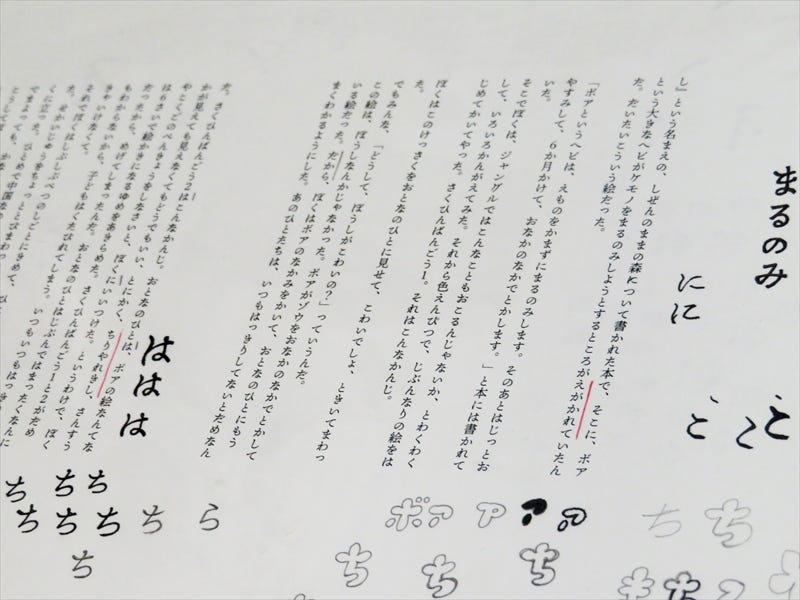 まるのみ
にに
とと
と
し』という名まえの、しぜんのままの森について書かれた本で、そこに、ボア
という大きなヘビがケモノをまるのみしようとするところがえがかれていたん
だ。だいたいこういう絵だった。
「ボアというヘビは、えものをかまずにまるのみします。そのあとはじっとお
やすみして、６か月かけて、おなかのなかでとかします。」と本には書かれて
いた。
そこでぼくは、ジャングルではこんなこともおこるんじゃないか、とわくわく
して、いろいろかんがえてみた。それから色えんぴつで、じぶんなりの絵をは
じめてかいてやった。さくひんばんごう1。それはこんなかんじ。
ぼくはこのけっさくをおとなのひとに見せて、こわいでしょ、ときいてまわっ
た。
でもみんな、「どうして、ぼうしがこわいの？」っていうんだ。
この絵は、ぼうしなんかじゃなかった。ボアがゾウをおなかのなかでとかして
いる絵だった。だから、ぼくはボアのなかみをかいて、おとなのひとにもう
まくわかるようにした。あのひとたちは、いつもはっきりしてないとだめなん
だ。さくひんばんごう2はこんなかんじ。
おとなのひとは、ボアの絵なんてな
かが見えても見えなくてもどうでもいい、とにかく、ちりやれきし、さんすう
やこくごのべんきょうをしなさいと、ぼくにいいつけた。というわけで、ぼく
は6さいで絵かきになるゆめをあきらめた。さくひんばんごう1と2がだめ
だったから、めげてしまったんだ。おとなのひとはじぶんではまったくなんに
もわからないから、子どもはくたびれてしまう。いつもいつもはっきり
きゃいけなくて。
それでぼくはしぶしぶべつのしごとにきめて、
た。せかいじゅうをちょっととびまわっ
くに立った。ひとめで中国な
でまよっても、
ははは
ア
ア
ア
ボア
ち
ち
ち
ち
ち
ら
ち
ちち
ちちち
ち
ち